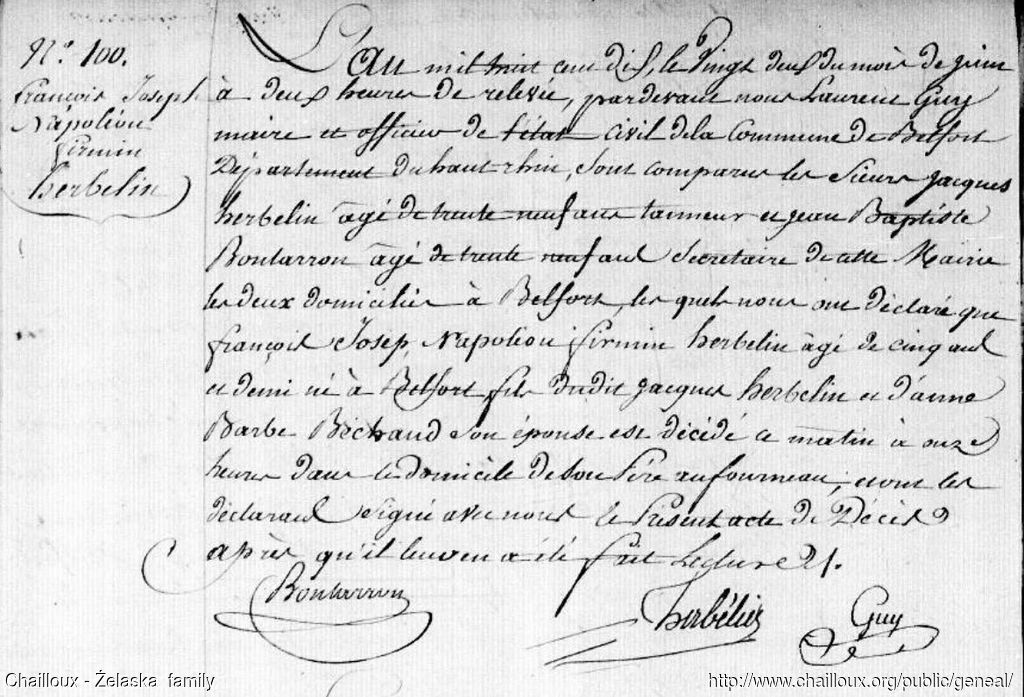 N.° 100.
françois Joseph
Napoléon
firmin
herbelin
L'an mil huit cent dix, le vingt deux du mois de juin
à deux heures de relevée, pardevant nous Laurent Guy
maire et officier de l'état civil de la Commune de Belfort
Département du haut rhin, sont comparus les sieurs jacques
herbelin âgé de trente neuf ans tanneur et jean Baptiste
Bontarron âgé de trente neuf ans secretaire de cette Mairie
les deux domiciliés à Belfort, les quels nous ont déclaré que
françois Josep Napoléon firmin herbelin âgé de cinq ans
et demi né à Belfort fils dudit jacques herbelin et d'anne
Barbe Béchaud son épouse est décédé ce matin à onze
heures dans le domicile de son Père au fourneau, et ont les
déclarans signé avec nous le Présent acte de Décès
après qu'il leur en a été fait Lecture
Bontarron
herbélin
Guy
Chailloux - Żelaska family
http://www.chailloux.org/public/geneal/